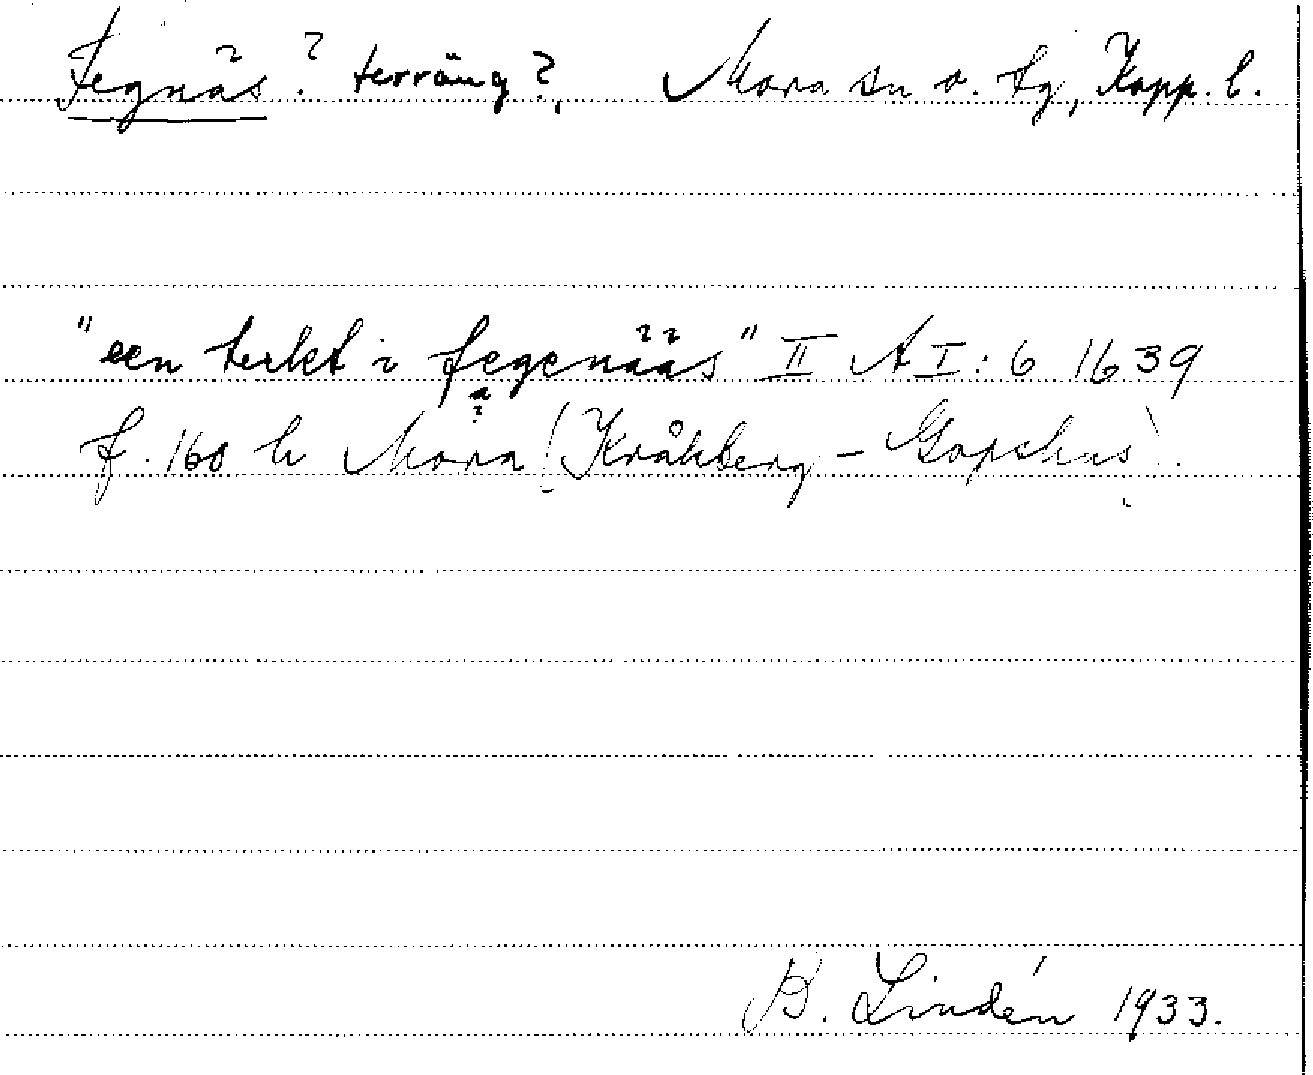 Fegnäs? terräng?, Mora sn o. tg, Kopp. l.
"een terkt i fegenääs" II A I: 6 1639
a?
f. 160 h Mora (Kråkberg - Gopshus).
B. Lindén 1933.